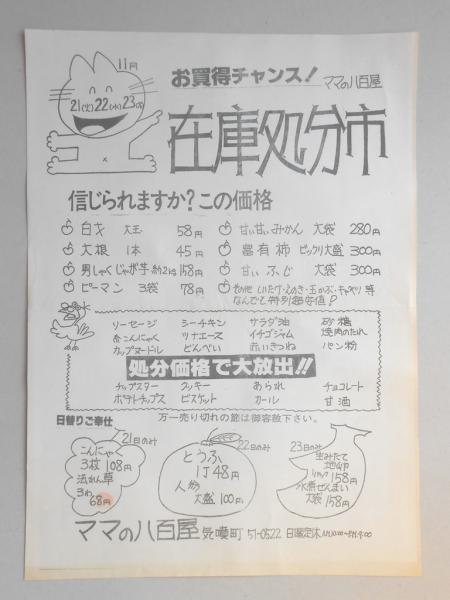 お買得チャンス！
ママの八百屋
11月
21(火)22(水)23(木)
在庫処分市
信じられますか？この価格
白才 大玉 58円
甘い甘いみかん 大袋 280円
大根 1本 45円
富有柿 ビックリ大盛 300円
男しゃくじゃが芋 約2kg 158円
甘い ふじ 大袋 300円
ピーマン 3袋 78円
その他 いたけ・えのき・玉かぶ・キャベツ 等
なんでも特別超安値！
ソーセージ シーチキン サラダ油 砂糖
糸こんにゃく ツナエース イチゴジャム 焼肉のたれ
カップヌードル どんべい 赤いきつね パン粉
処分価格で大放出!!
チップスター クッキー あられ チョコレート
ポテトチップス ビスケット カール 甘酒
万一売り切れの節は御容赦下さい。
日替りご奉仕
21日のみ
こんにゃく
3枚 108円
法れん草
3わ 68円
22日のみ
とうふ
1丁 48円
人参
大盛 100円
23日のみ
生みたて
地卵
1パック 158円
水煮ぜんまい
大袋 158円
ママの八百屋 気噴町 51-0522 日曜定休 AM10:00~PM9:00